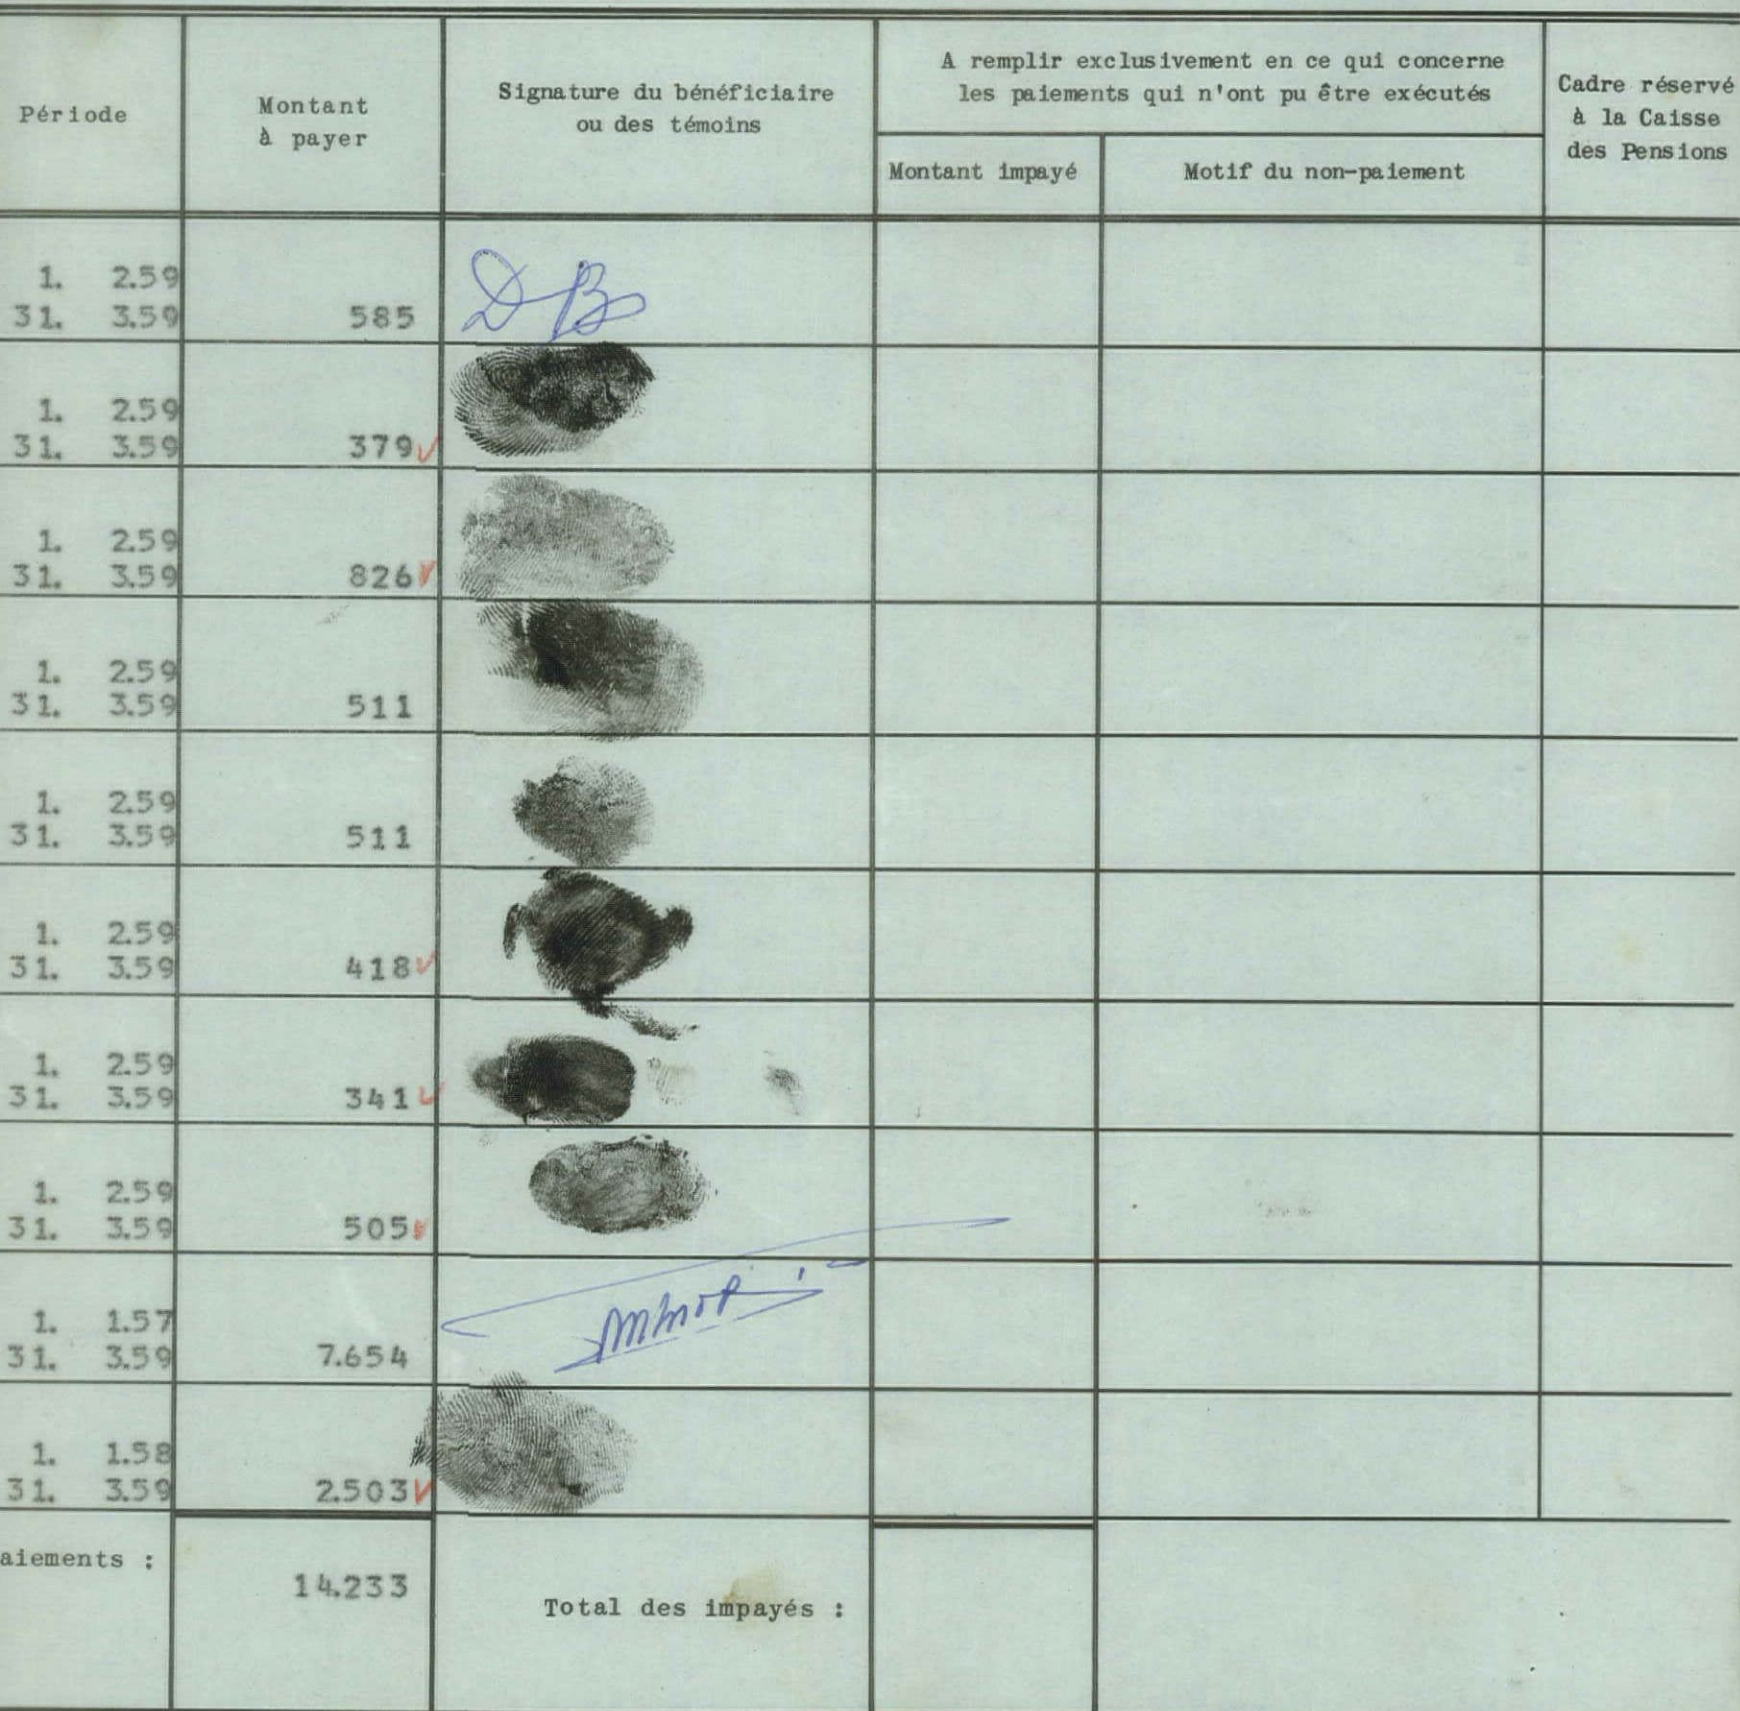 Période
Montant
à payer
Signature du bénéficiaire
ou des témoins
A remplir exclusivement en ce qui concerne
les paiements qui n'ont pu être exécutés
Montant impayé
Motif du non-paiement
Cadre réservé
à la Caisse
des Pensions
1. 2.59
31. 3.59 585 DB
1. 2.59
31. 3.59 379
1. 2.59
31. 3.59 826
1. 2.59
31. 3.59 511
1. 2.59
31. 3.59 511
1. 2.59
31. 3.59 418
1. 2.59
31. 3.59 341
1. 2.59
31. 3.59 505
1. 1.57
31. 3.59 7.654
1. 1.58
31. 3.59 2.503
aiements :
14.233
Total des impayés :